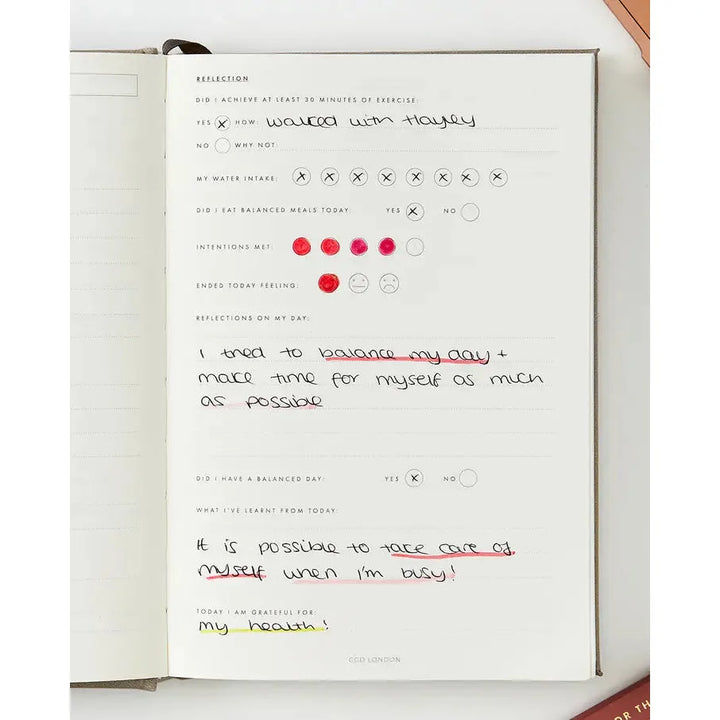 REFLECTION
DID I ACHIEVE AT LEAST 30 MINUTES OF EXERCISE:
YES HOW: walked with Hayley
NO WHY NOT:
MY WATER INTAKE:
DID I EAT BALANCED MEALS TODAY: YES NO
INTENTIONS MET:
ENDED TODAY FEELING:
REFLECTIONS ON MY DAY:
I tried to balance my day +
make time for myself as much
as possible
DID I HAVE A BALANCED DAY: YES NO
WHAT I'VE LEARNT FROM TODAY:
It is possible to take care of
myself when I'm busy!
TODAY I AM GRATEFUL FOR:
my health!
CGD LONDON
OR TH